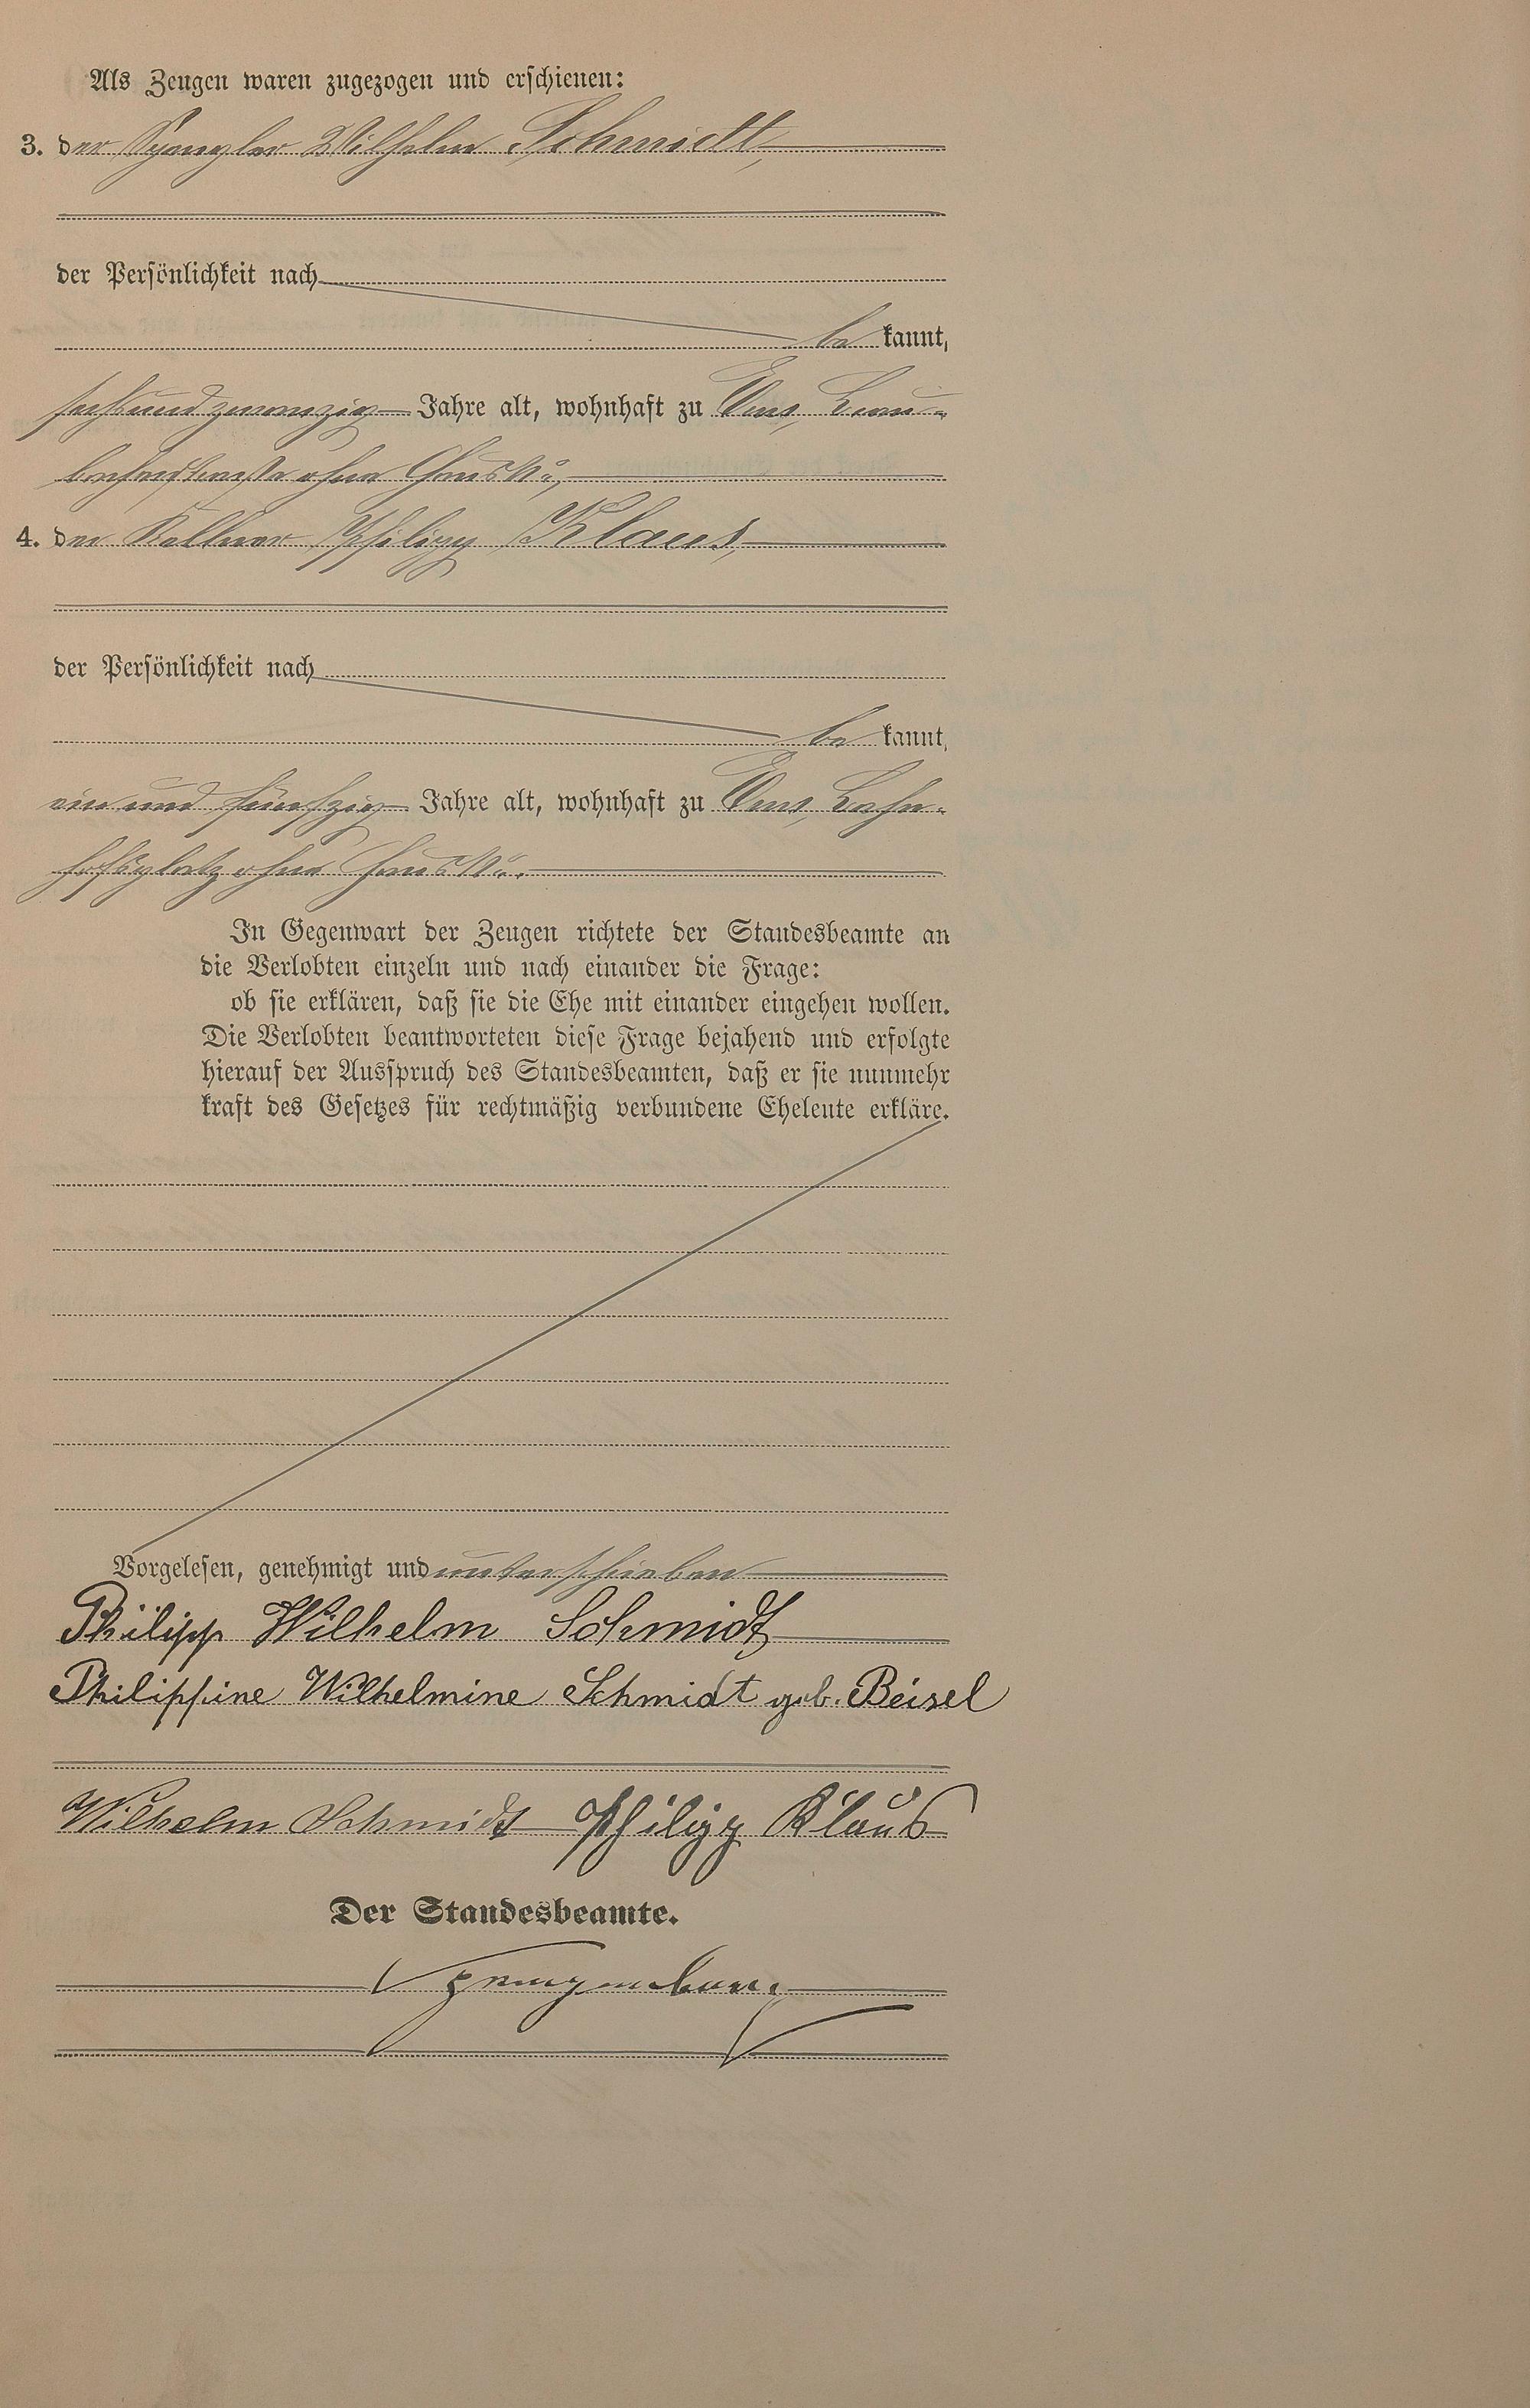 Als Zeugen waren zugezogen und erschienen:
3. der Spengler Wilhelm Schmidt,
der Persönlichkeit nach
be kannt,
sechsundzwanzig Jahre alt, wohnhaft zu Ems,
straße ohne Haus No,
4. der Kellner Philipp Klaus,
der Persönlichkeit nach
be kannt,
ein und fünfzig Jahre alt, wohnhaft zu Ems, Bahn-
hofsplatz ohne Haus No.
In Gegenwart der Zeugen richtete der Standesbeamte an
die Verlobten einzeln und nach einander die Frage:
ob sie erklären, daß sie die Ehe mit einander eingehen wollen.
Die Verlobten beantworteten diese Frage bejahend und erfolgte
hierauf der Ausspruch des Standesbeamten, daß er sie nunmehr
kraft des Gesetzes für rechtmäßig verbundene Eheleute erkläre.
Vorgelesen, genehmigt und unterschrieben
Philipp Wilhelm Schmidt
Philippine Wilhelmine Schmidt geb. Beisel
Wilhelm Schmidt Philipp Klaus
Der Standesbeamte.